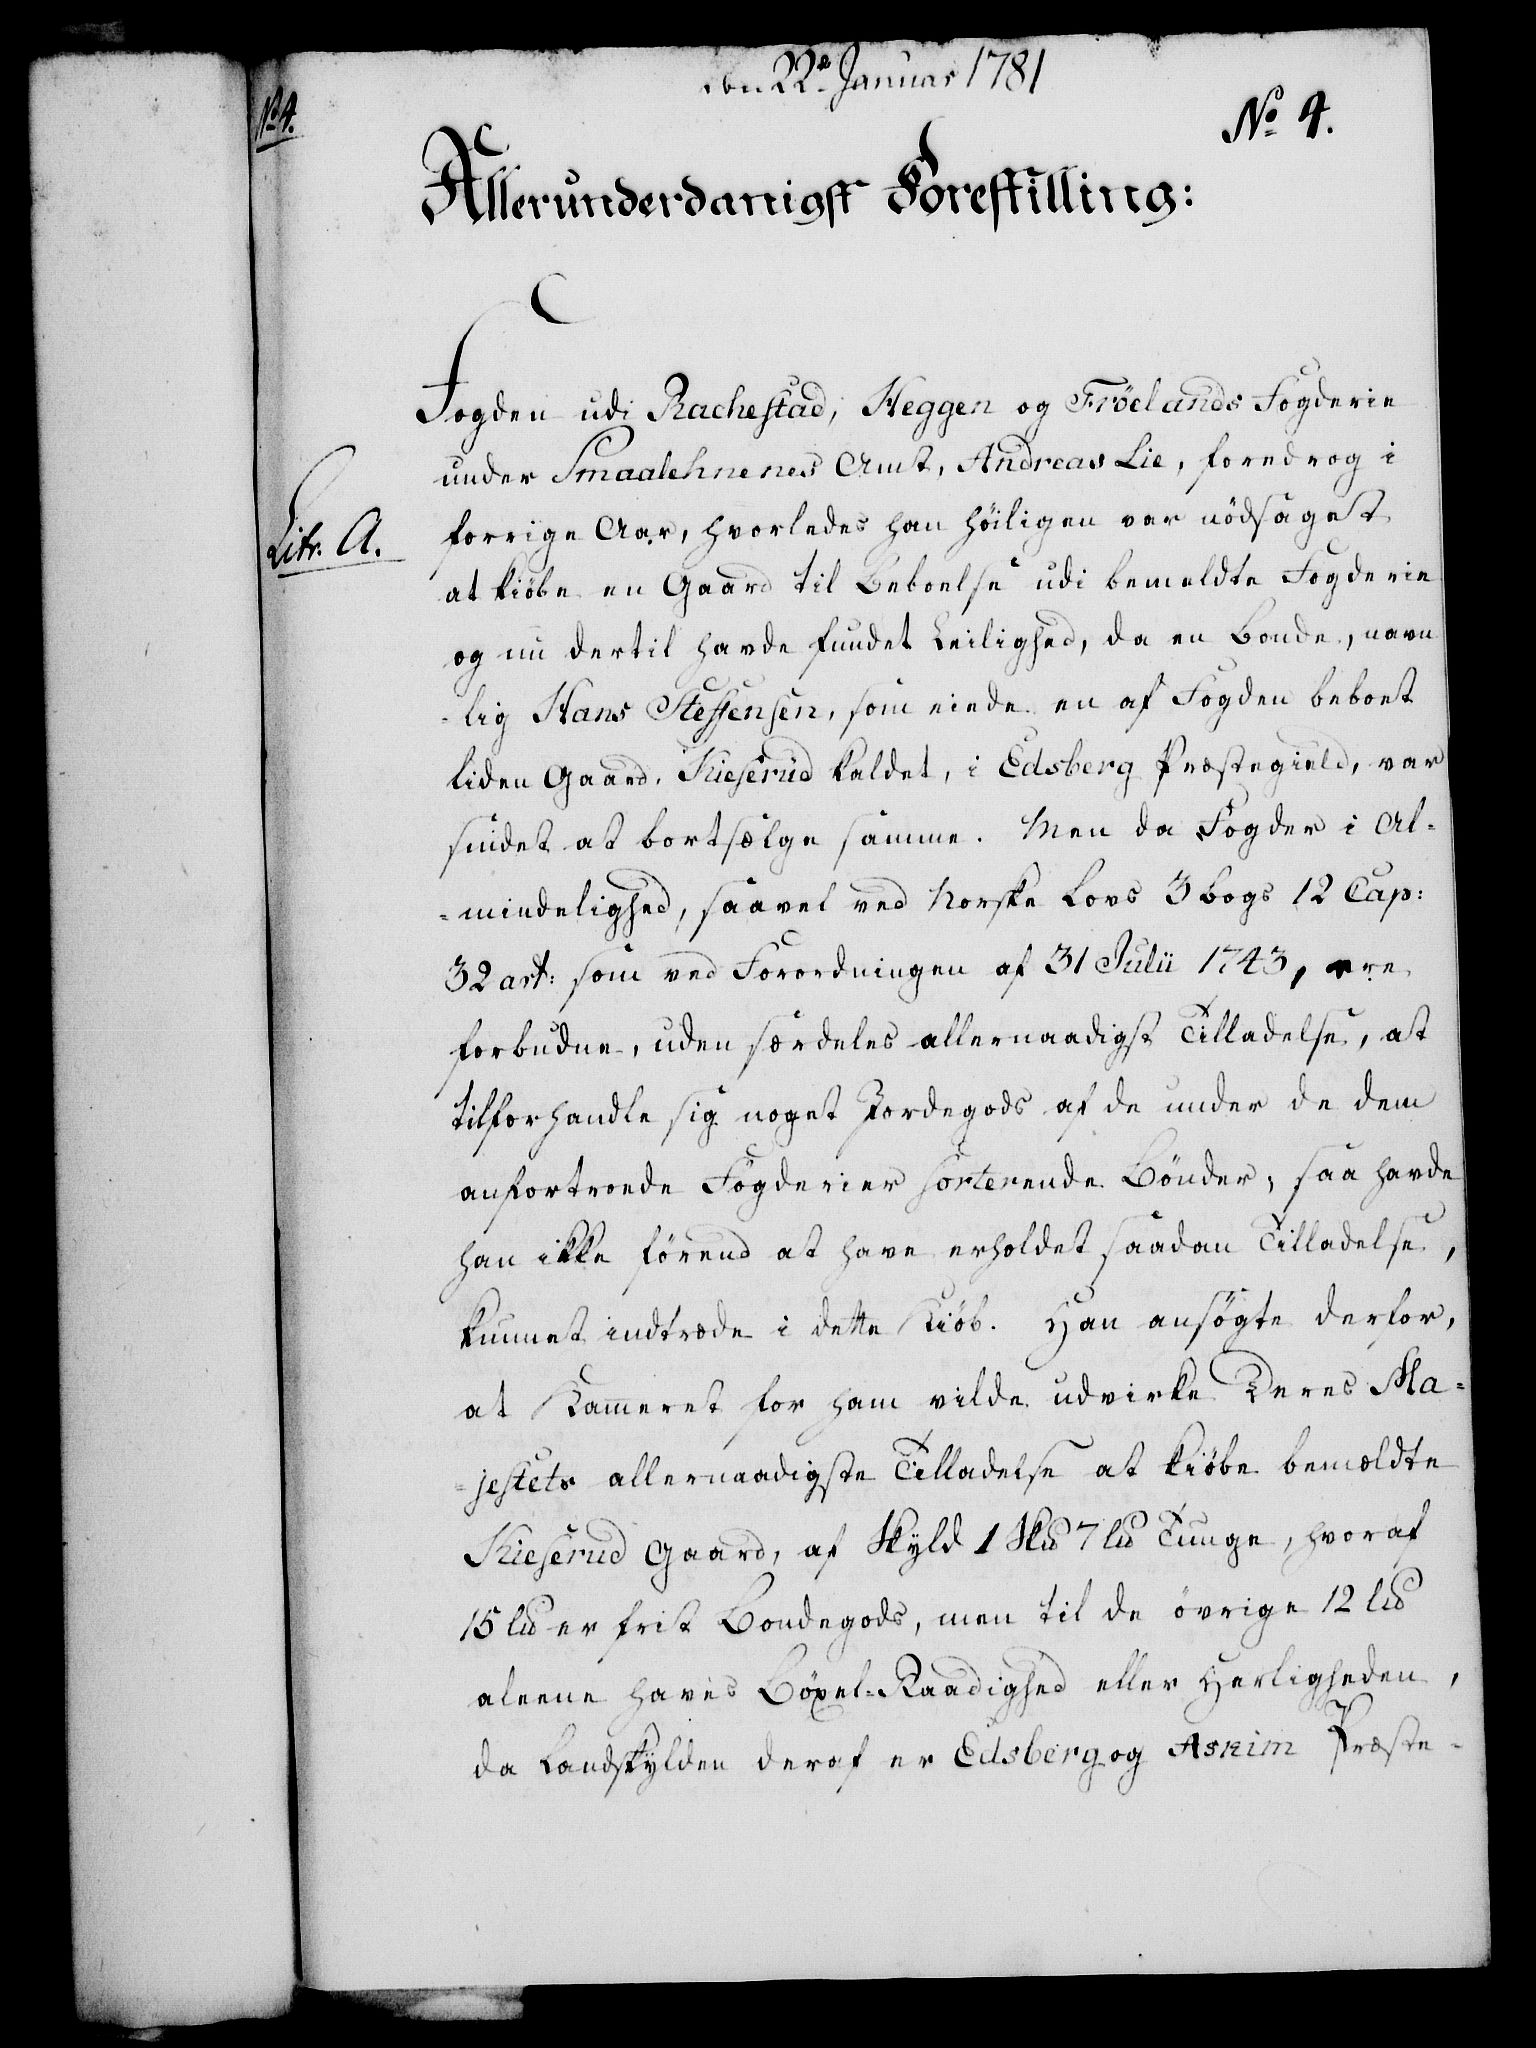 den 22de Januar 1781
No 4.
No 4.
Allerunderdanigst Forestilling:
Fogden udi Rachestad, Heggen og Fröelands Fogderie
under Smaalehnenes Amt, Andreas Lie, foredrog i
Litr. A.
forrige Aar, hvorledes han höiligen var nödsaget
at kiöbe en Gaard til Beboelse udi bemeldte Fogderie
og nu dertil havde fundet Leilighed, da en Bonde, navn
-lig Hans Steffensen, som eiede en af Fogden beboet
liden Gaard, Kieserud kaldet, i Edsberg Præstegield, var
sindet at bortsælge samme. Men da Fogder i Al-
-mindelighed, saavel ved Norske Lovs 3 bogs 12 Cap:
32 art: som ved Forordningen af 31 Julii 1743, ere
forbudne, uden særdeles allernaadigst Tilladelse, at
tilforhandle sig noget Jordegods af de under de dem
anfortroede Fögderier sorterende Bönder; saa havde
han ikke förend at have erholdet saadan Tilladelse,
kunnet indtræde i dette Kiöb. Han ansögte derfor,
at Kammeret for ham vilde udvirke Deres Ma-
-jestets allernaadigste Tilladelse at kiöbe bemældte
Kieserud Gaard, af Skyld 1 Skd 7 ld Tunge, hvoraf
15 ld er frit Bondegods, men til de övrige 12 ld
aleene haves Böxel-Raadighed eller Herligheden,
da Landskylden deraf er Edsberg og Askim Præste-